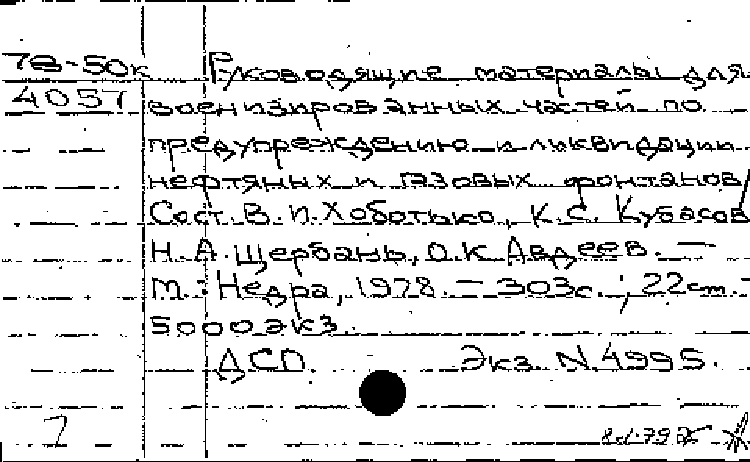 78-50к Руководящие материалы для
4057 военизированных частей по
предупреждению и ликвидации
нефтяных и газовых фонтанов/
Сост. В.П. Хоботько, К.С. Кубасов
Н.А. Щербань, О.К Авдеев. —
М.: Недра, 1978. — 303с. ; 22см. -
5000экз.
ДСП. Экз. N 4995.